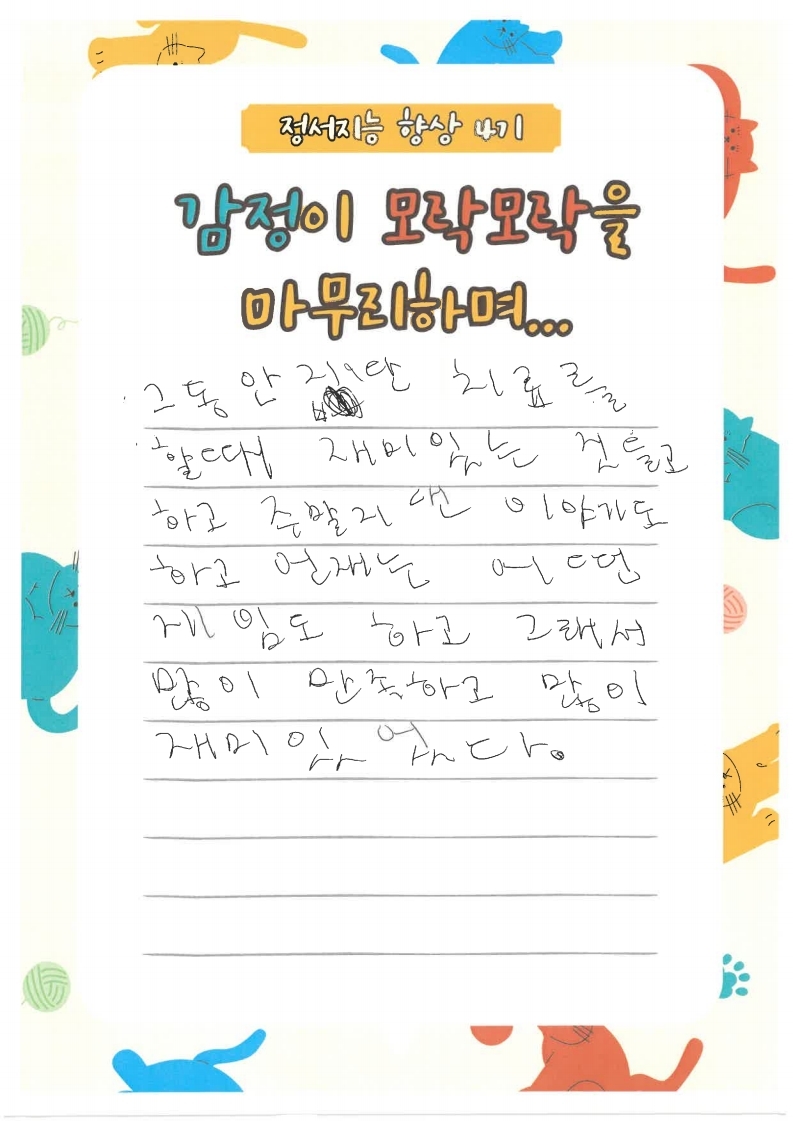 정서지능 향상 4기
감정이 모락모락을
마무리하며...
그동안 집단 치료를
할때 재미있는 것들고
하고 주말지낸 이야기도
하고 언재는 어떤
게임도 하고 그래서
많이 만족하고 많이
재미있었다.